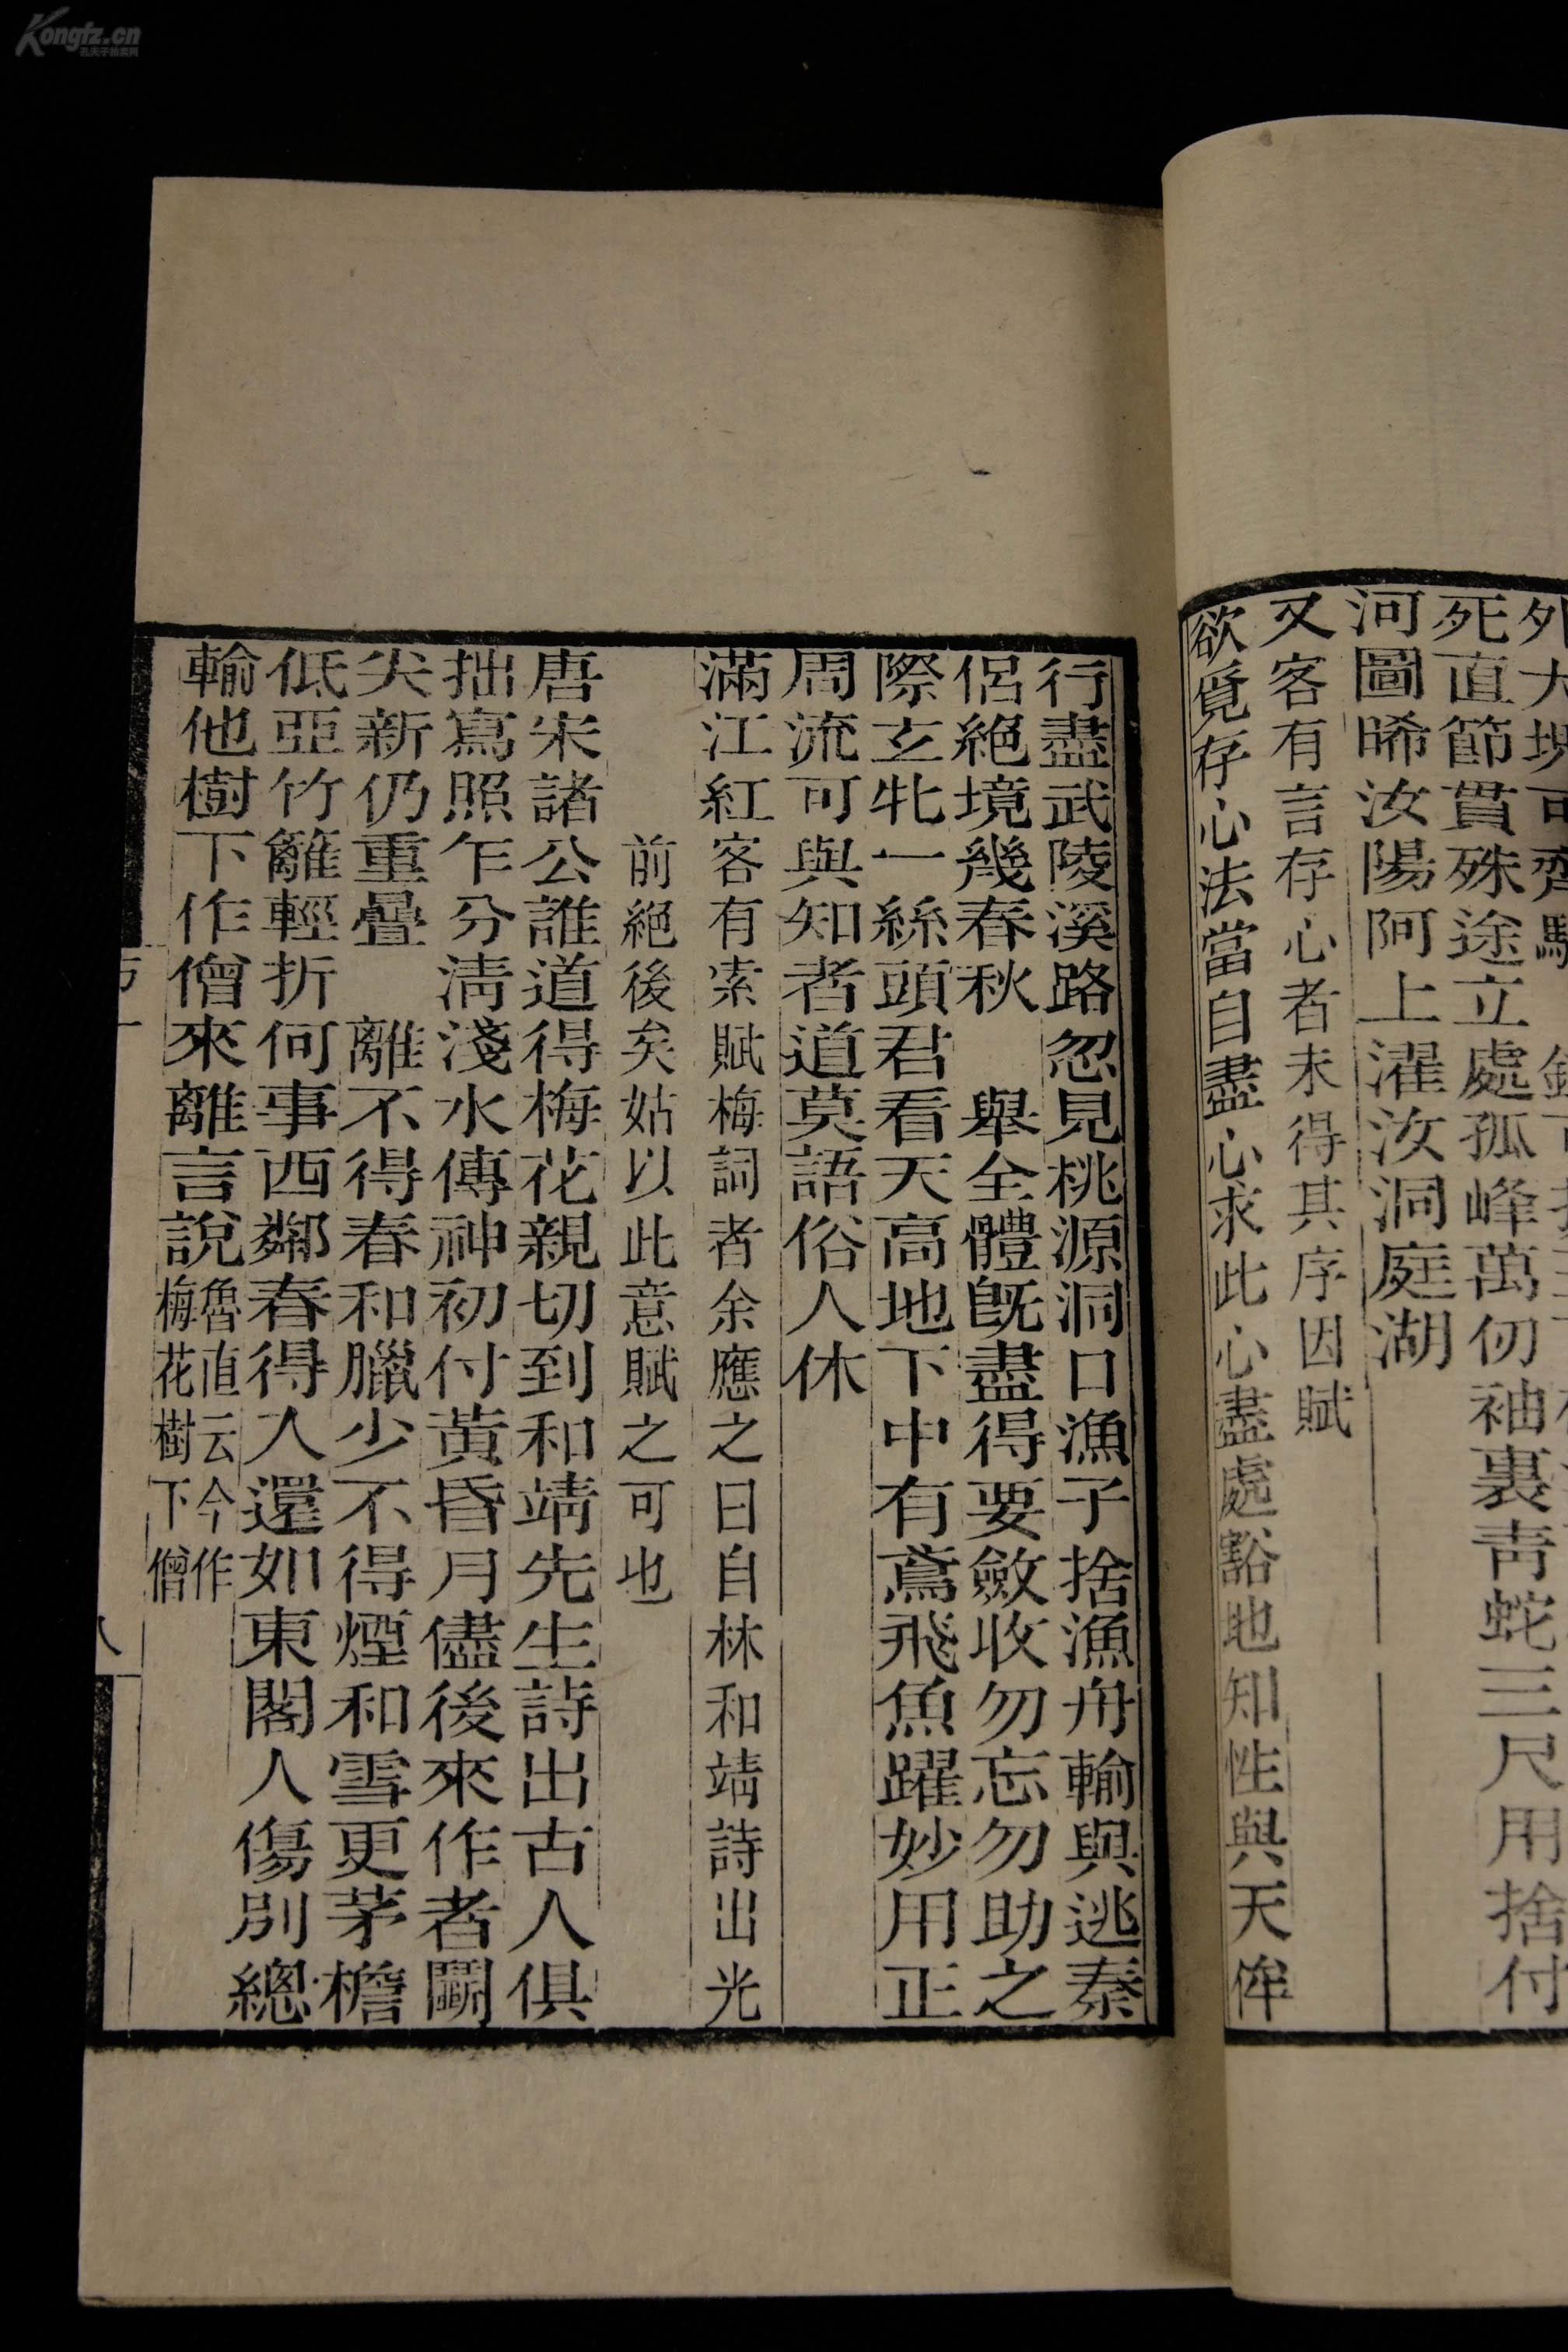 死直節貫殊途立處孤峰萬仞袖裏青蛇三尺用捨付
河圖晞汝陽阿上濯汝洞庭湖
又客有言存心者未得其序因賦
欲覓存心法當自盡心求此心盡處豁地知性與天侔
行盡武陵溪路忽見桃源洞口漁子捨漁舟輸與逃秦
侶絕境幾春秋　舉全體旣盡得要斂收勿忘勿助之
際玄牝一絲頭君看天高地下中有鳶飛魚躍妙用正
周流可與知者道莫語俗人休
滿江紅客有索賦梅詞者余應之曰自林和靖詩出光
前絕後矣姑以此意賦之可也
唐宋諸公誰道得梅花親切到和靖先生詩出古人俱
拙寫照乍分淸淺水傳神初付黃昏月儘後來作者鬭
尖新仍重疊　離不得春和臘少不得煙和雪更茅檐
低亞竹籬輕折何事西鄰春得入還如東閣人傷別總
輸他樹下作僧來離言說魯直云今作梅花樹下僧
Kongfz.cn
孔夫子拍卖网